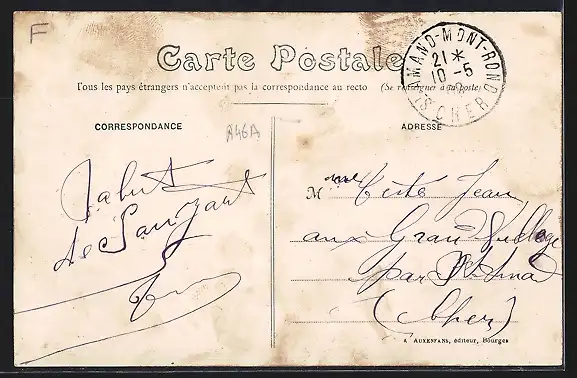 F
Carte Postale
Tous les pays étrangers n'acceptent pas la correspondance au recto (Se renseigner à la poste)
AMAND-MONT-ROND
21 *
10 -5
CHER
CORRESPONDANCE
A46A
ADRESSE
Salut
de
M me Jean
aux Grand Village
par
(Cher)
AUXENFANS, éditeur, Bourges